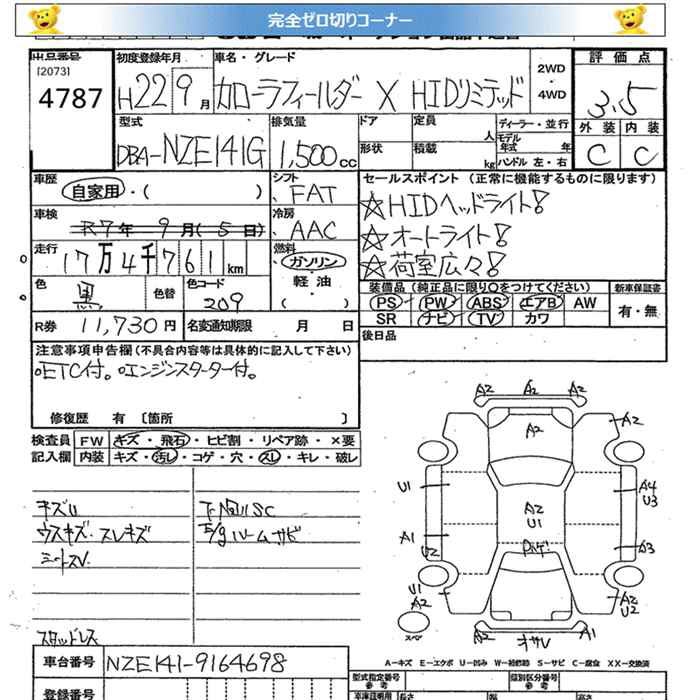 完全ゼロ切りコーナー
出品番号
[2073]
4787
初度登録年月
H22 9月
車名・グレード
カローラフィールダー X HIDリミテッド
2WD
・
4WD
評価点
3.5
外装 内装
C C
型式
DBA-NZE141G
排気量
1,500cc
ドア
定員
人
ディーラー・並行
モデル年式 年
形状
積載
kg
ハンドル 左・右
車歴
自家用・( )
シフト
FAT
セールスポイント (正常に機能するものに限ります)
☆HIDヘッドライト!
☆オートライト!
☆荷室広々!
車検
R7年 9月(5日)
冷房
AAC
走行
17万4千761km
燃料
ガソリン
・
軽油
・
( )
色
黒
色替
色コード
209
装備品 (純正品に限り○をつけてください)
新車保証書
PS PW ABS エアB AW
有・無
SR ナビ TV カワ
R券 11,730円
名変通知期限 月 日
後日品
注意事項申告欄(不具合内容等は具体的に記入して下さい)
○ETC付。○エンジンスターター付。
修復歴 有 〔箇所 〕
検査員 FW キズ・飛石・ヒビ割・リペア跡・×要
記入欄 内装 キズ・汚レ・コゲ・穴・スレ・キレ・破レ
キズU
ウスキズ・スレキズ
ルームサビ
スタッドレス
A2 A2 A2
A2
A2
U1
A4
U3
A2
U1
A1
U2
A3
U1
A2
A2
U2
スペア
A2
A1
車台番号
NZE141-9164698
A-キズ E-エクボ U-凹み W-補修跡 S-サビ C-腐食 XX-交換済
登録番号
型式指定番号
参考
類別区分番号
参考
車庫証明用
長さ
幅
高さ